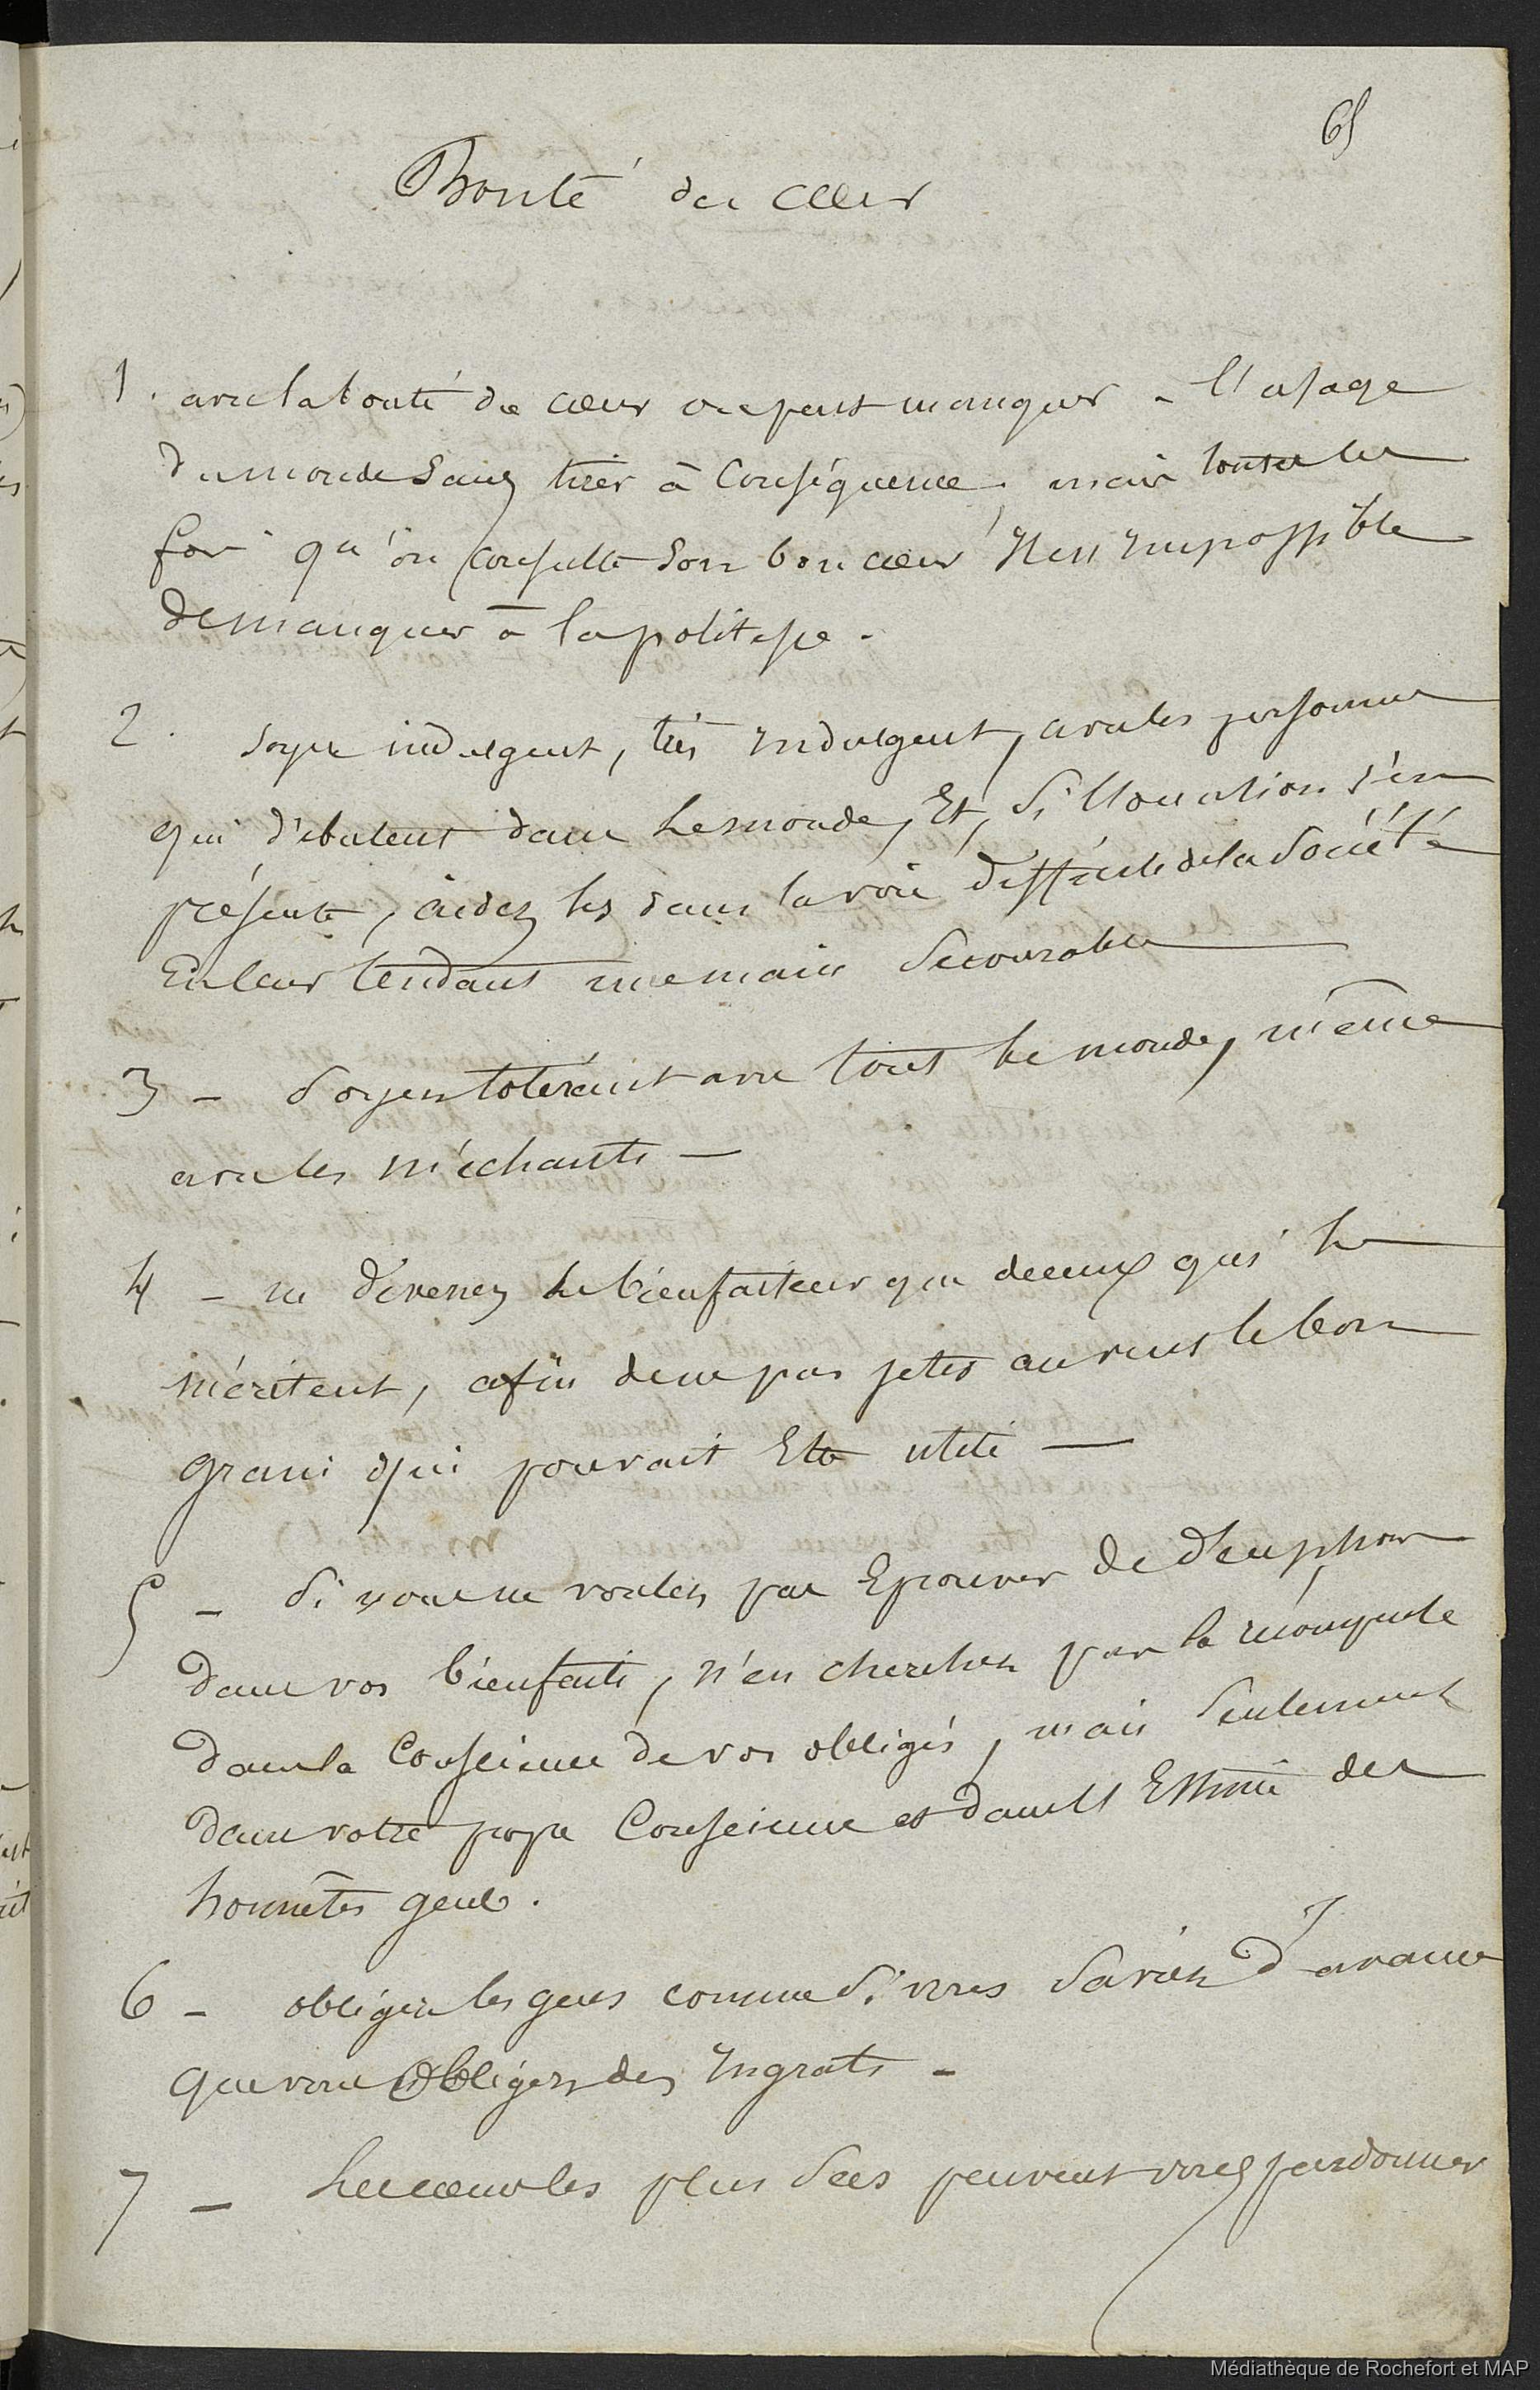 65
Bonté du cœur
1. avec la bonté du cœur on peut manquer à l'usage
du monde sans tirer à conséquence, mais toutes les
fois qu'on consulte son bon cœur il est impossible
de manquer à la politesse.
2. Soyez indulgent, très indulgent, avec les personnes
qui débutent dans le monde, Et, si l'occasion s'en
présente, aidez les dans la voie difficile de la Société
En leur tendant une main secourable
3 – Soyez tolérant avec tout le monde, même
avec les méchants –
4 – ne devenez le bienfaiteur que de ceux qui le
méritent, afin de ne pas jeter au vent le bon
grain qui pourrait Etre utile –
5 – Si vous ne voulez pas Eprouver de
dans vos bienfaits, n'en cherchez pas la récompense
dans la Conscience de vos obligés, mais seulement
dans votre propre Conscience et dans l'Estime des
honnêtes gens.
6 – obligez les gens comme si vous saviez d'avance
que vous obligez des Ingrats –
7 – Les cœurs les plus secs peuvent vous pardonner
Médiathèque de Rochefort et MAP